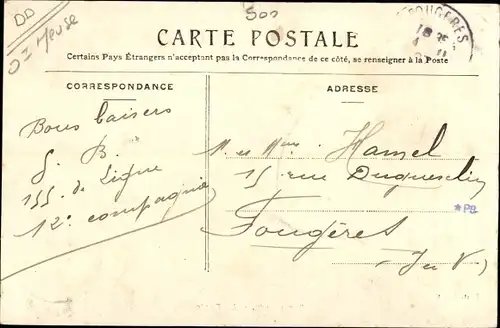 DD
Meuse
500
FOUGERES
CARTE POSTALE
Certains Pays Étrangers n'acceptant pas la Correspondance de ce côté, se renseigner à la Poste
CORRESPONDANCE
Bons baisers
B.
155e de Ligne
12e compagnie
ADRESSE
M. et Mme Hamel
15 rue Duguesclin
*PB
Fougères
(I et V)